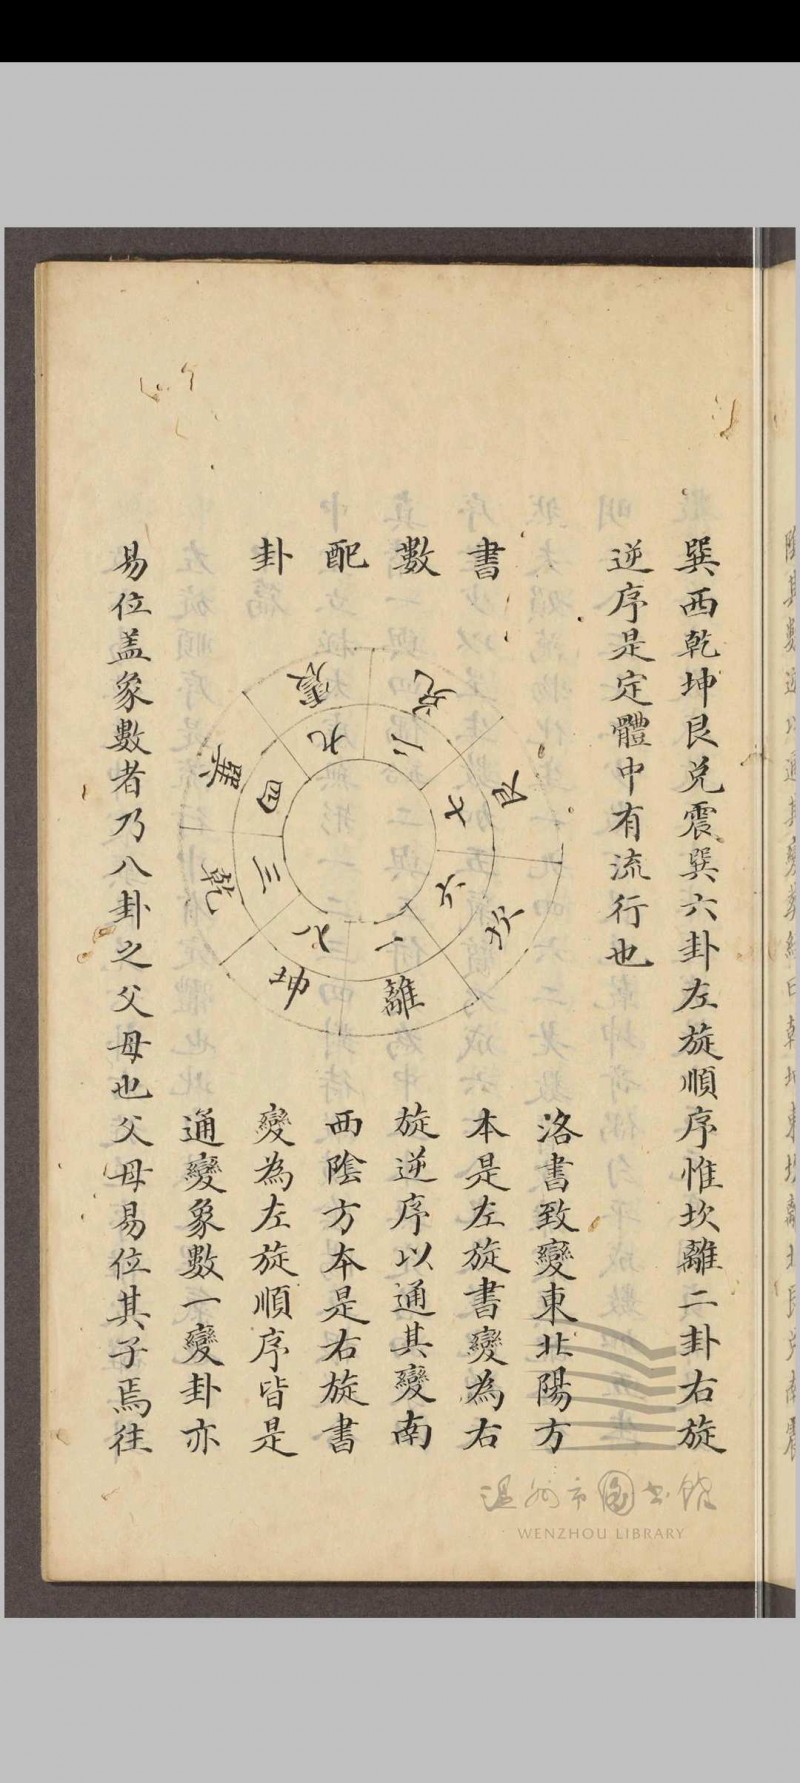 巽西乾坤艮兌震巽六卦左旋順序惟坎離二卦右旋
逆序是定體中有流行也
書
數
配
卦
兌
艮
坎
離
坤
乾
巽
震
二
七
六
一
八
三
四
九
洛書致變東北陽方
本是左旋書變為右
旋逆序以通其變南
西陰方本是右旋書
變為左旋順序皆是
通變象數一變卦亦
易位盖象數者乃八卦之父母也父母易位其子焉往
温州市圖书馆
WENZHOU LIBRARY